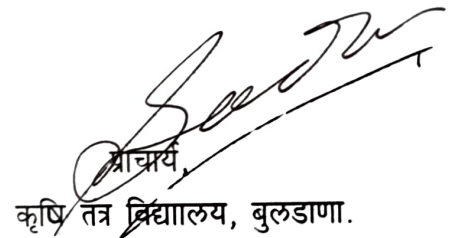 प्राचार्य,
कृषि तंत्र विद्याालय, बुलडाणा.